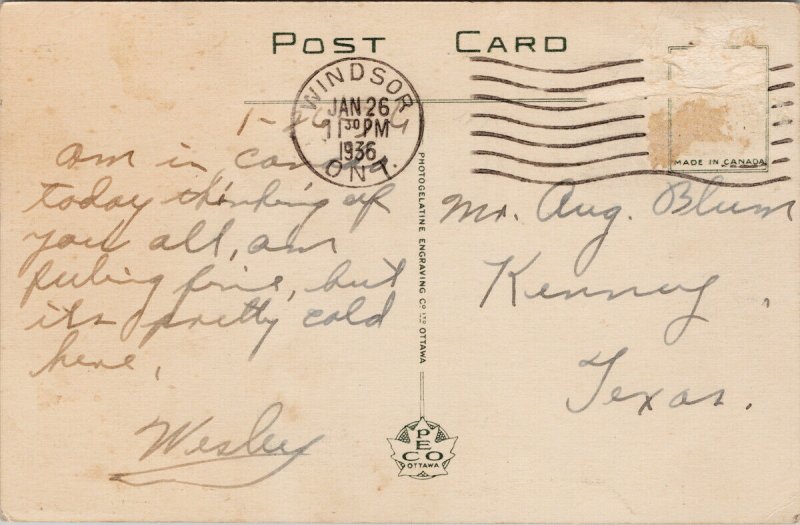 POST CARD
WINDSOR
JAN 26
11 30 PM
1936
ONT.
MADE IN CANADA
1-26-36
am in canada
today thinking of
you all, am
feeling fine, but
its pretty cold
here,
Wesley
PHOTOGELATINE ENGRAVING CO. LTD. OTTAWA
PECO
OTTAWA
Mr. Aug. Blum
Kenney,
Texas.